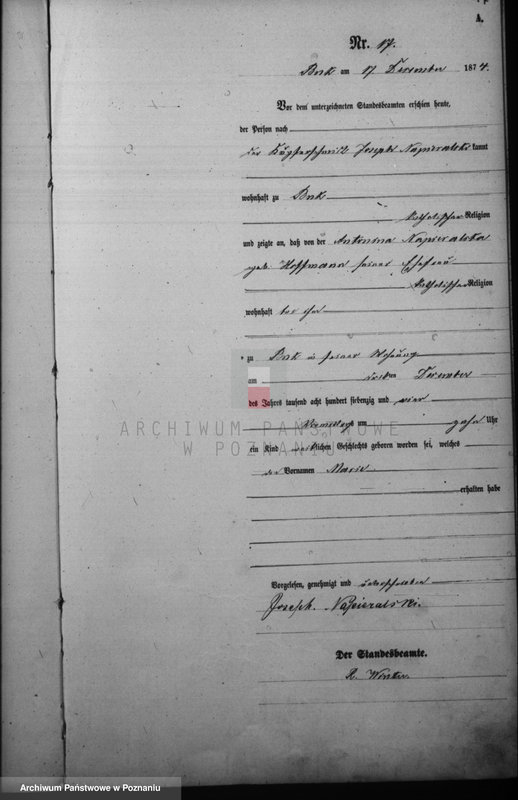 A.
Nr. 17.
Buk am 17 Dezember 1874.
Vor dem unterzeichneten Standesbeamten erschien heute,
der Person nach
der Joseph Napieralski kannt
wohnhaft zu Buk
katholischer Religion
und zeigte an, daß von der Antonina Napieralska
geb Hoffmann seiner Ehefrau
katholischer Religion
wohnhaft bei ihm
zu Buk in seiner Wohnung
am ten Dezember
des Jahres tausend acht hundert siebenzig und vier
Vormittags um zehn Uhr
ein Kind weiblichen Geschlechts geboren worden sei, welches
den Vornamen Marie
erhalten habe
Vorgelesen, genehmigt und unterschrieben
Joseph. Napieralski.
Der Standesbeamte.
R.
ARCHIWUM PAŃSTWOWE
W POZNANIU
Archiwum Państwowe w Poznaniu